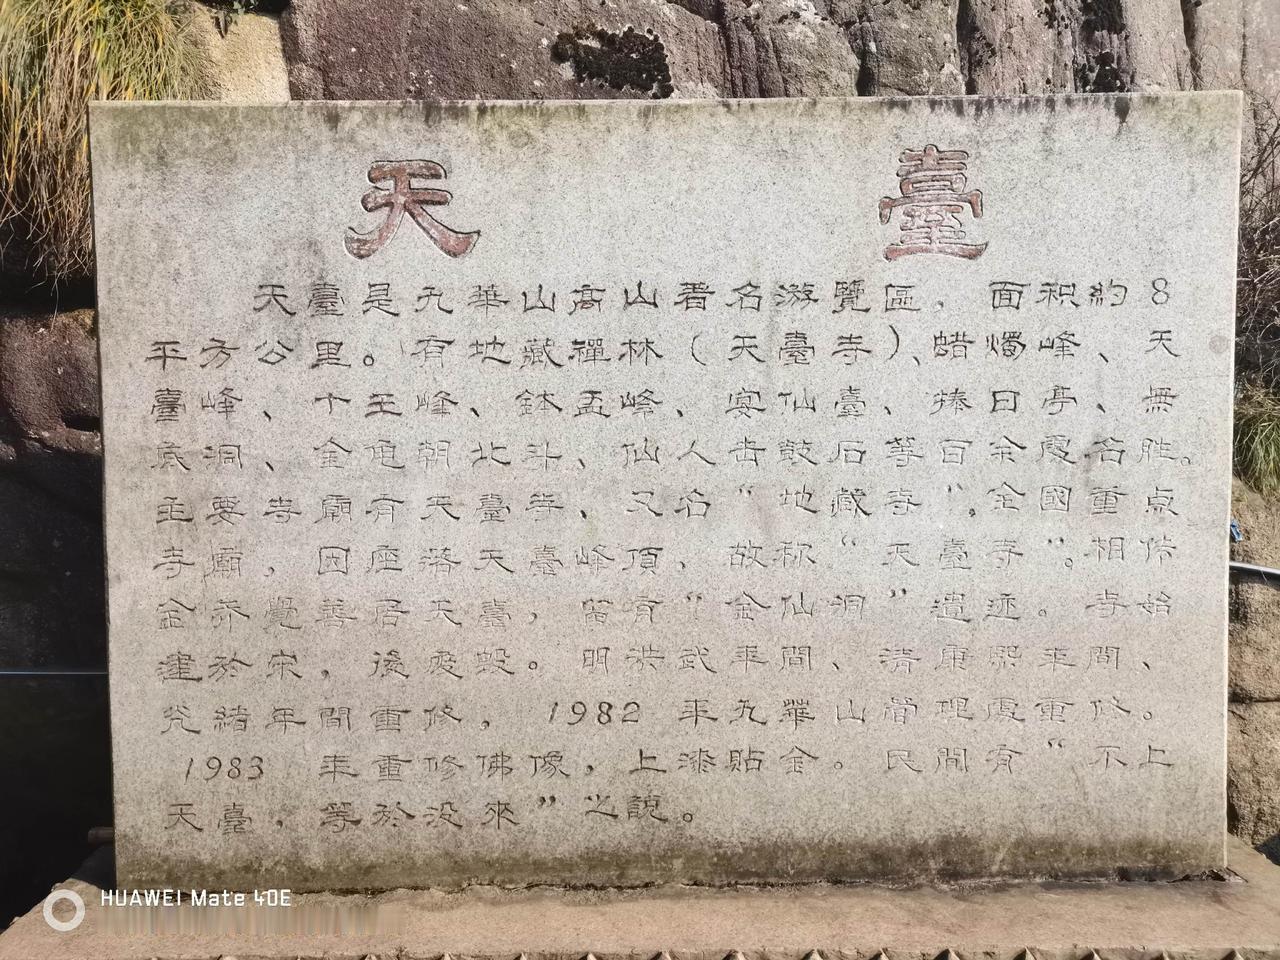 天臺
天臺是九華山高山著名游覽區，面积約8
平方公里。有地藏禪林（天臺寺）、蜡燭峰、天
臺峰、十王峰、鉢盂峰、宴仙臺、捧日亭、無
底洞、金龟朝北斗、仙人击鼓石等百余處名胜。
主要寺廟有天臺寺，又名“地藏寺”。全國重点
寺廟，因座落天臺峰頂，故称“天臺寺”。相傳
金乔覺善居天臺，留有“金仙洞”遺迹。寺始
建於宋，後废毁。明洪武年間、清康熙年間、
光緒年間重修。1982年九華山管理處重修。
1983年重修佛像，上漆貼金。民間有“不上
天臺，等於没來”之說。
HUAWEI Mate 40E